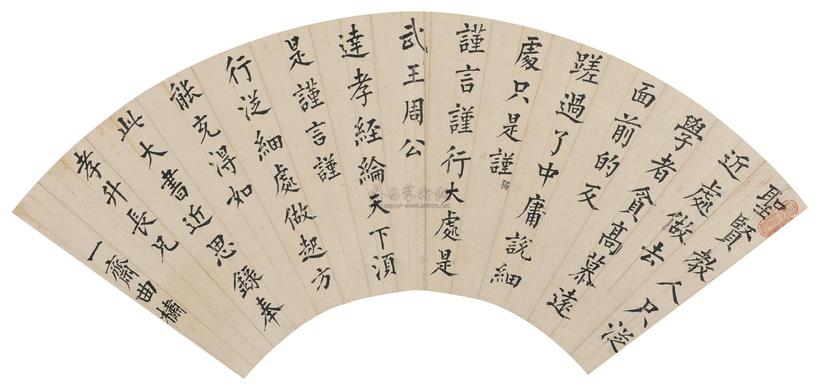 聖賢教人只從
近處做去
學者貪高慕遠
面前的反
蹉過了中庸說細
處只是謹
謹言謹行大處是
武王周公
達孝經綸天下須
是謹言謹
行從細處做起方
能充得如
此大書近思錄奉
孝升長兄
一齋曲橋